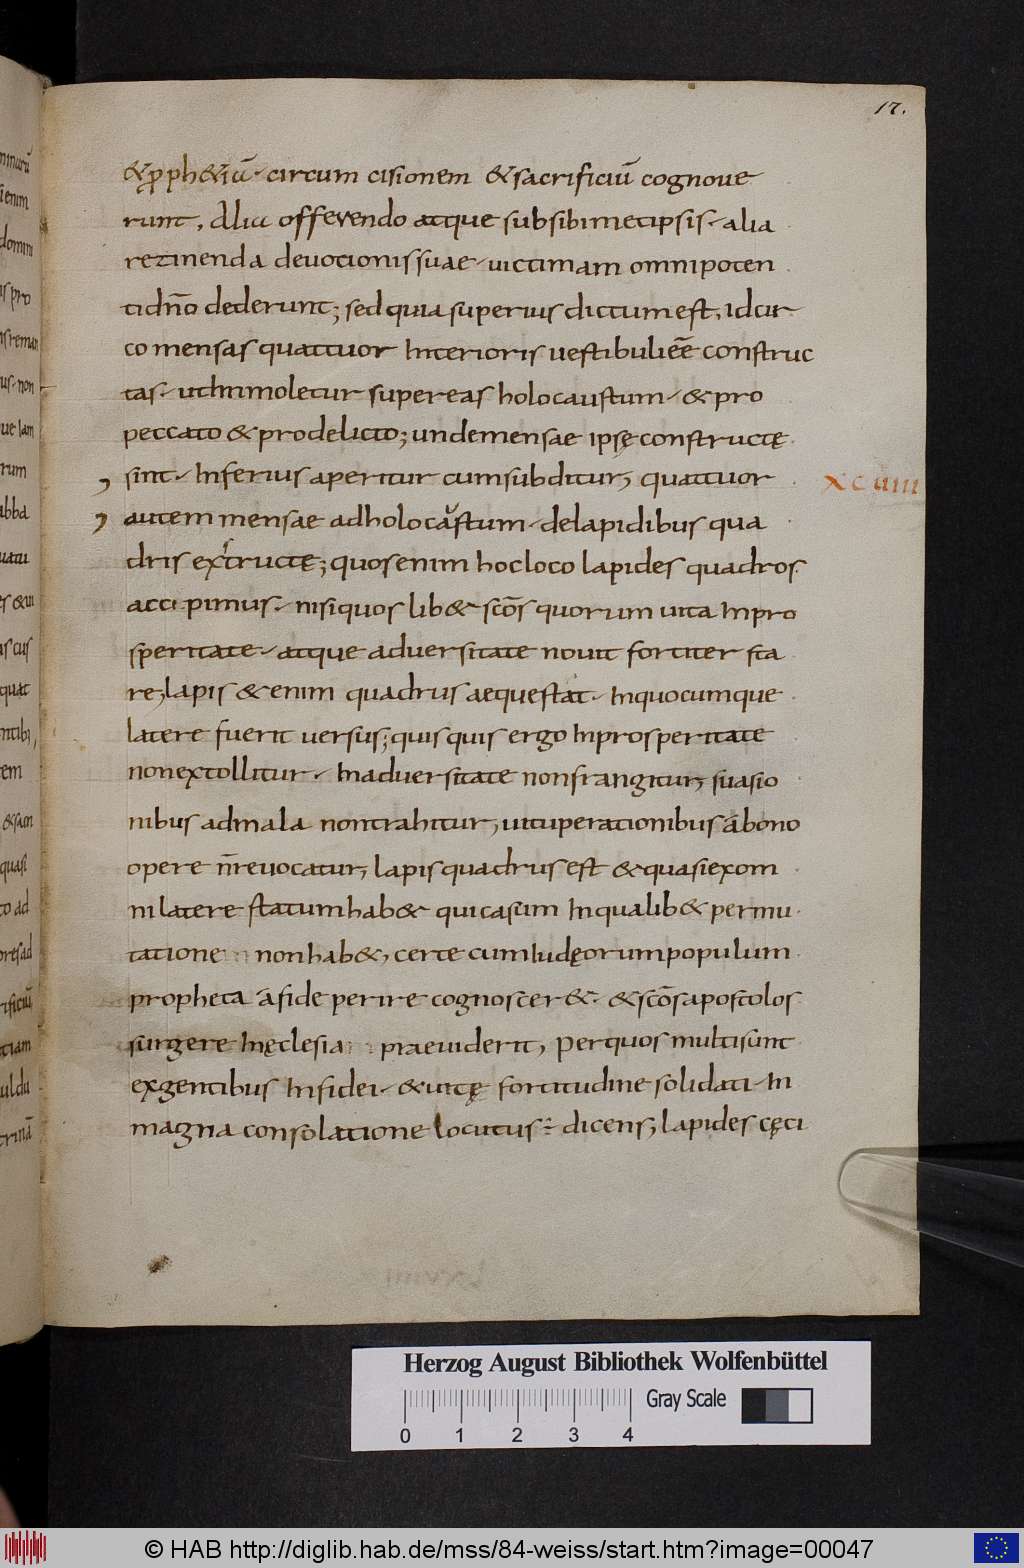 17.
&p̄ph&iā· circum cisionem &sacrificiū cognoue
runt, Alia offerendo atque subsibimetipsis· alia
retinenda deuotionissuae· uictimam omnipoten
tidño dederunt; sed quia superius dictum est, idcir
co mensas quattuor Interioris uestibuliēē construc
tas· utImmoletur supereas holocaustum· & pro
peccato & prodelicto; undemensae ipsę constructę
sint· Inferius aperitur cumsubditur, quattuor
xcuiii
autem mensae adholocaustum· delapidibus qua
dris extructę; quosenim hocloco lapides quadros
accipimus· nisiquos lib& scōs quorum uita Inpro
speritate· atque aduersitate nouit fortiter sta
re, lapis &enim quadrus aequestat· Inquocumque
latere fuerit uersus; quisquis ergo Inprosperitate
nonextollitur· Inaduersitate nonfrangitur, suasio
nibus admala nontrahitur, uituperationibus abono
opere ñreuocatur, lapisquadrus est &quasiexom
ni latere statumhab& quicasum Inqualib& permu
tatione nonhab&, certe cumIudęorumpopulum
propheta afide perire cognoscer&· &scōsapostolos
surgere Inęclesia praeuiderit, Perquos multisunt
exgentibus Infidei· &uitę fortitudine solidati· In
magna consolatione locutus· dicens, lapides cęci
Herzog August Bibliothek Wolfenbüttel
Gray Scale
0 1 2 3 4
© HAB http://diglib.hab.de/mss/84-weiss/start.htm?image=00047